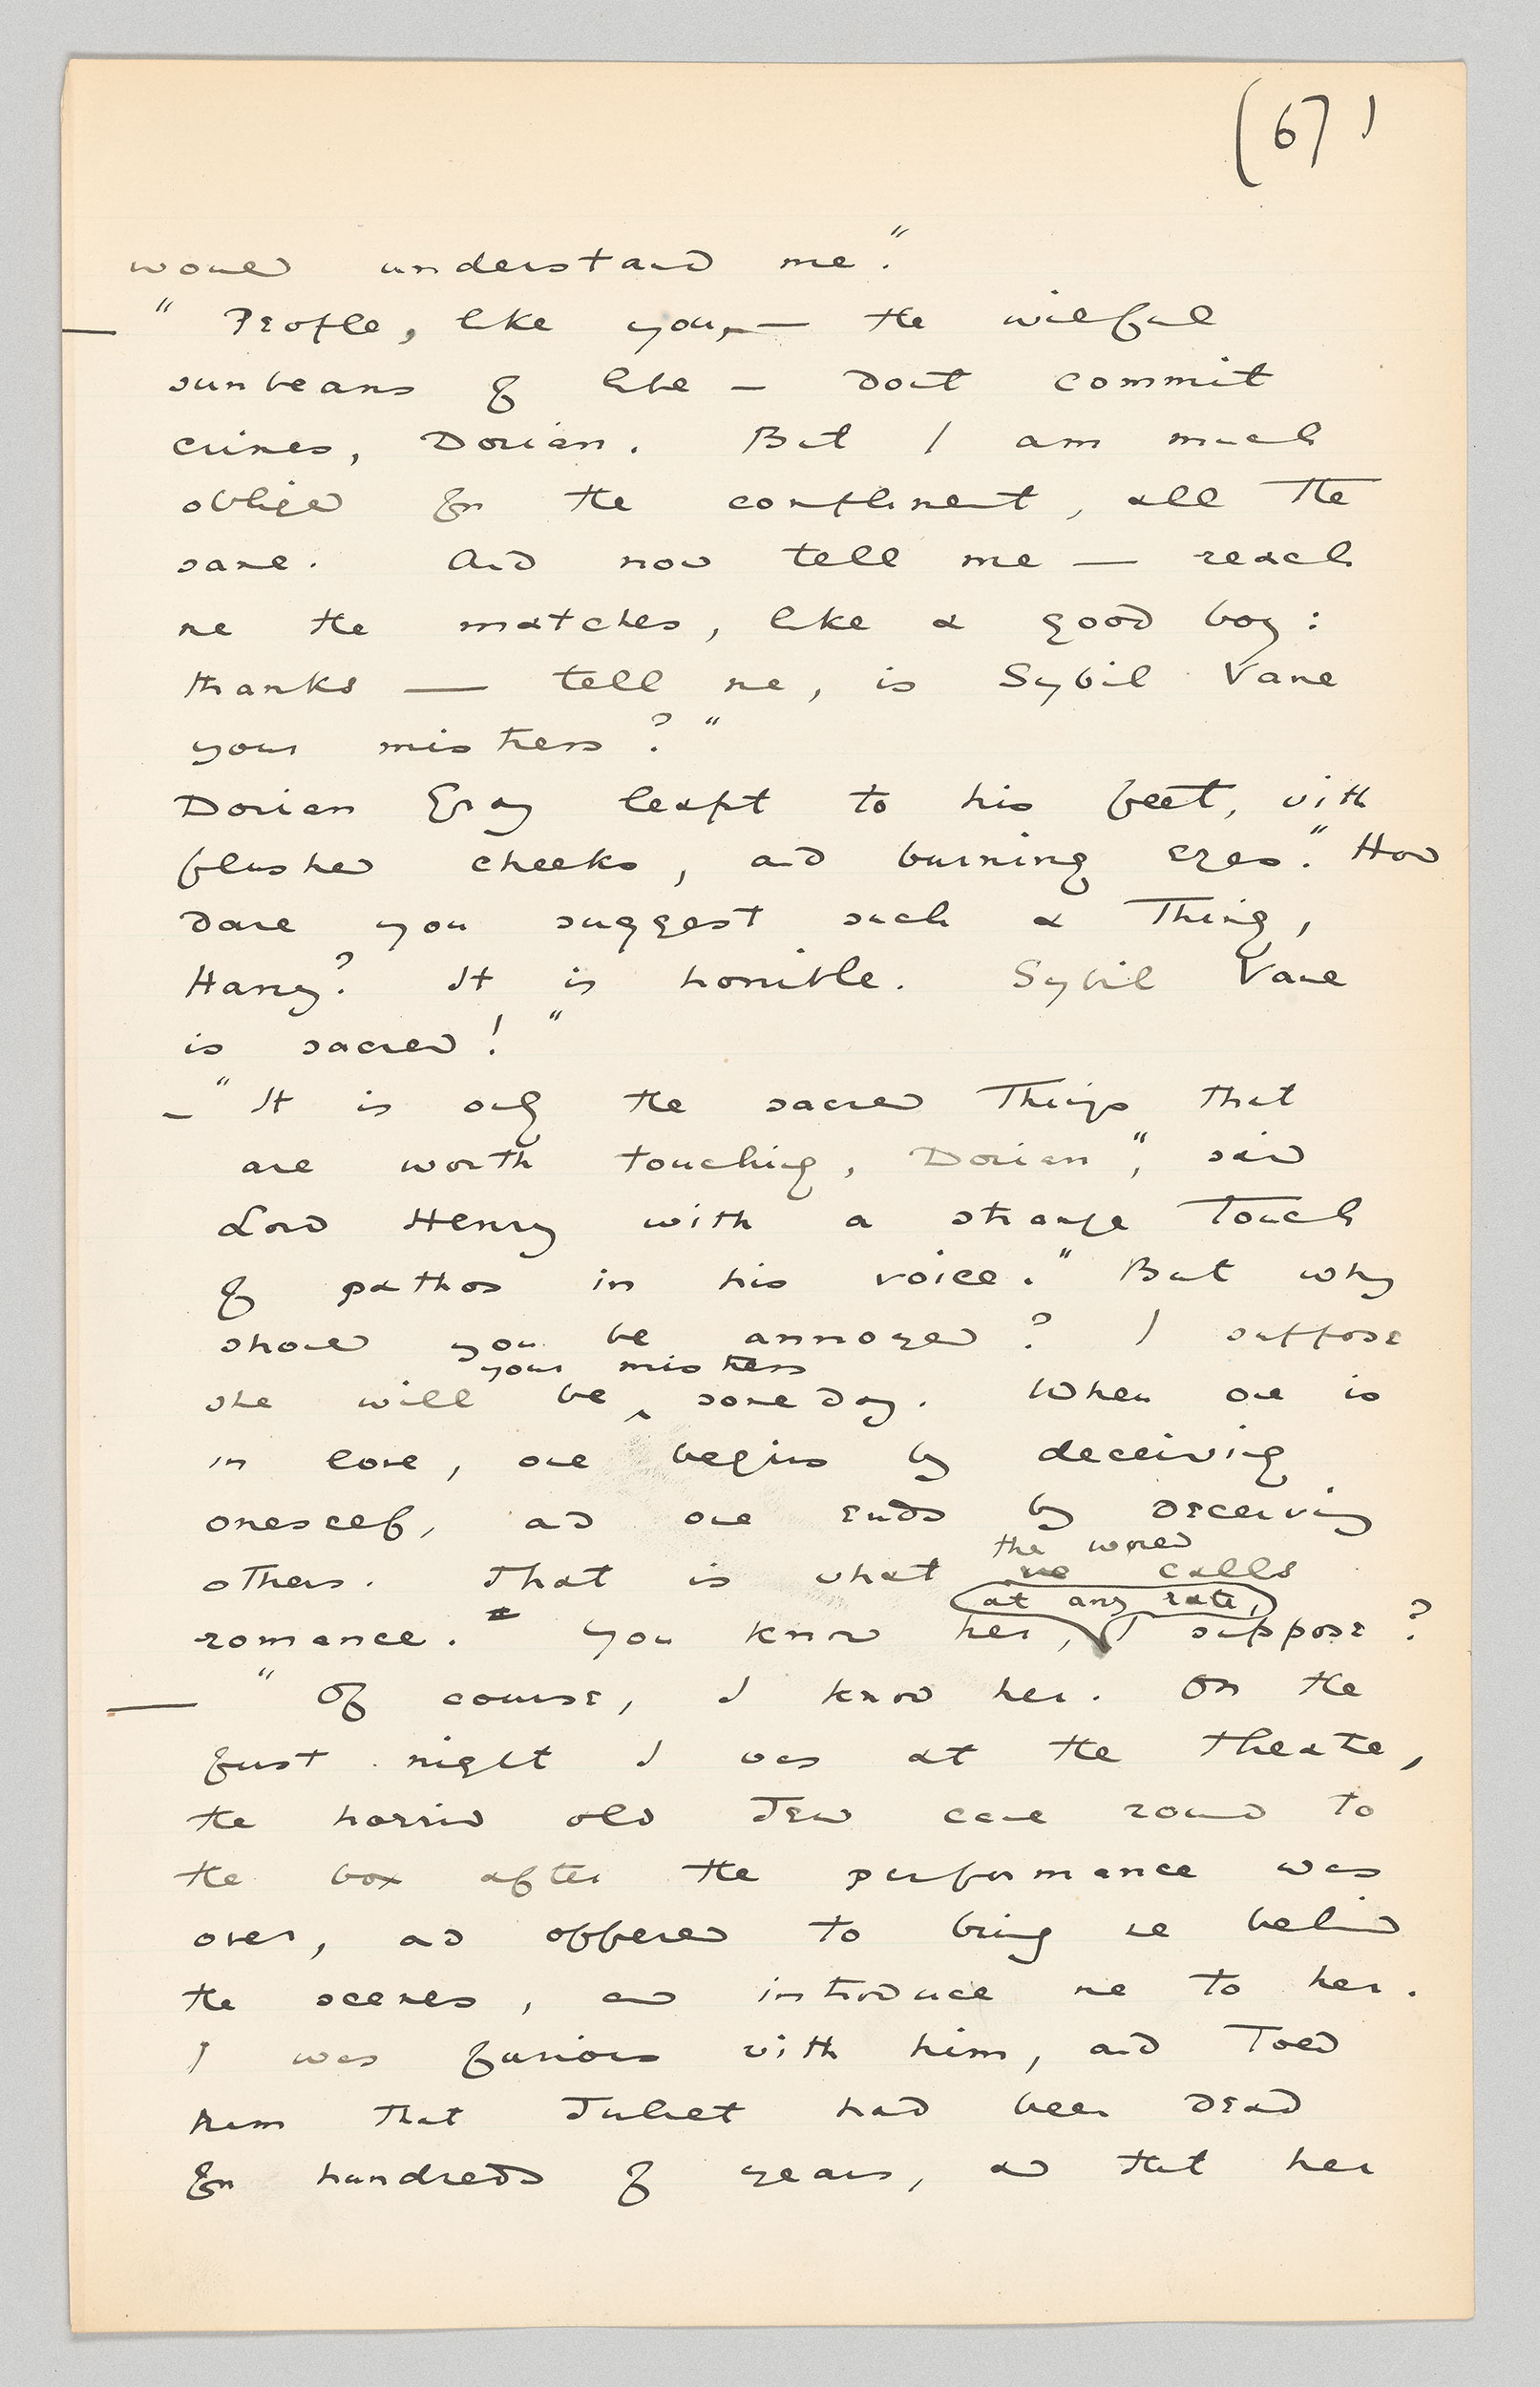 (67)
would understand me."
— " People, like you, — the wilful
sunbeams of life — dont commit
crimes, Dorian. But I am much
obliged for the compliment, all the
same. And now tell me — reach
me the matches, like a good boy:
thanks — tell me, is Sybil Vane
your mistress?"
Dorian Gray leapt to his feet, with
flushed cheeks, and burning eyes. "How
dare you suggest such a thing,
Harry? It is horrible. Sybil Vane
is sacred!"
— "It is only the sacred things that
are worth touching, Dorian", said
Lord Henry with a strange touch
of pathos in his voice. "But why
should you be annoyed? I suppose
your mistress
she will be ^ some day. When one is
in love, one begins by deceiving
oneself, and one ends by deceiving
the world
others. That is what calls
at any rate,
romance." You know her, I suppose?
— "Of course, I know her. On the
first night I was at the theatre,
the horrid old Jew came round to
the box after the performance was
over, and offered to bring me behind
the scenes, and introduce me to her.
I was furious with him, and told
him that Juliet had been dead
for hundreds of years, and that her